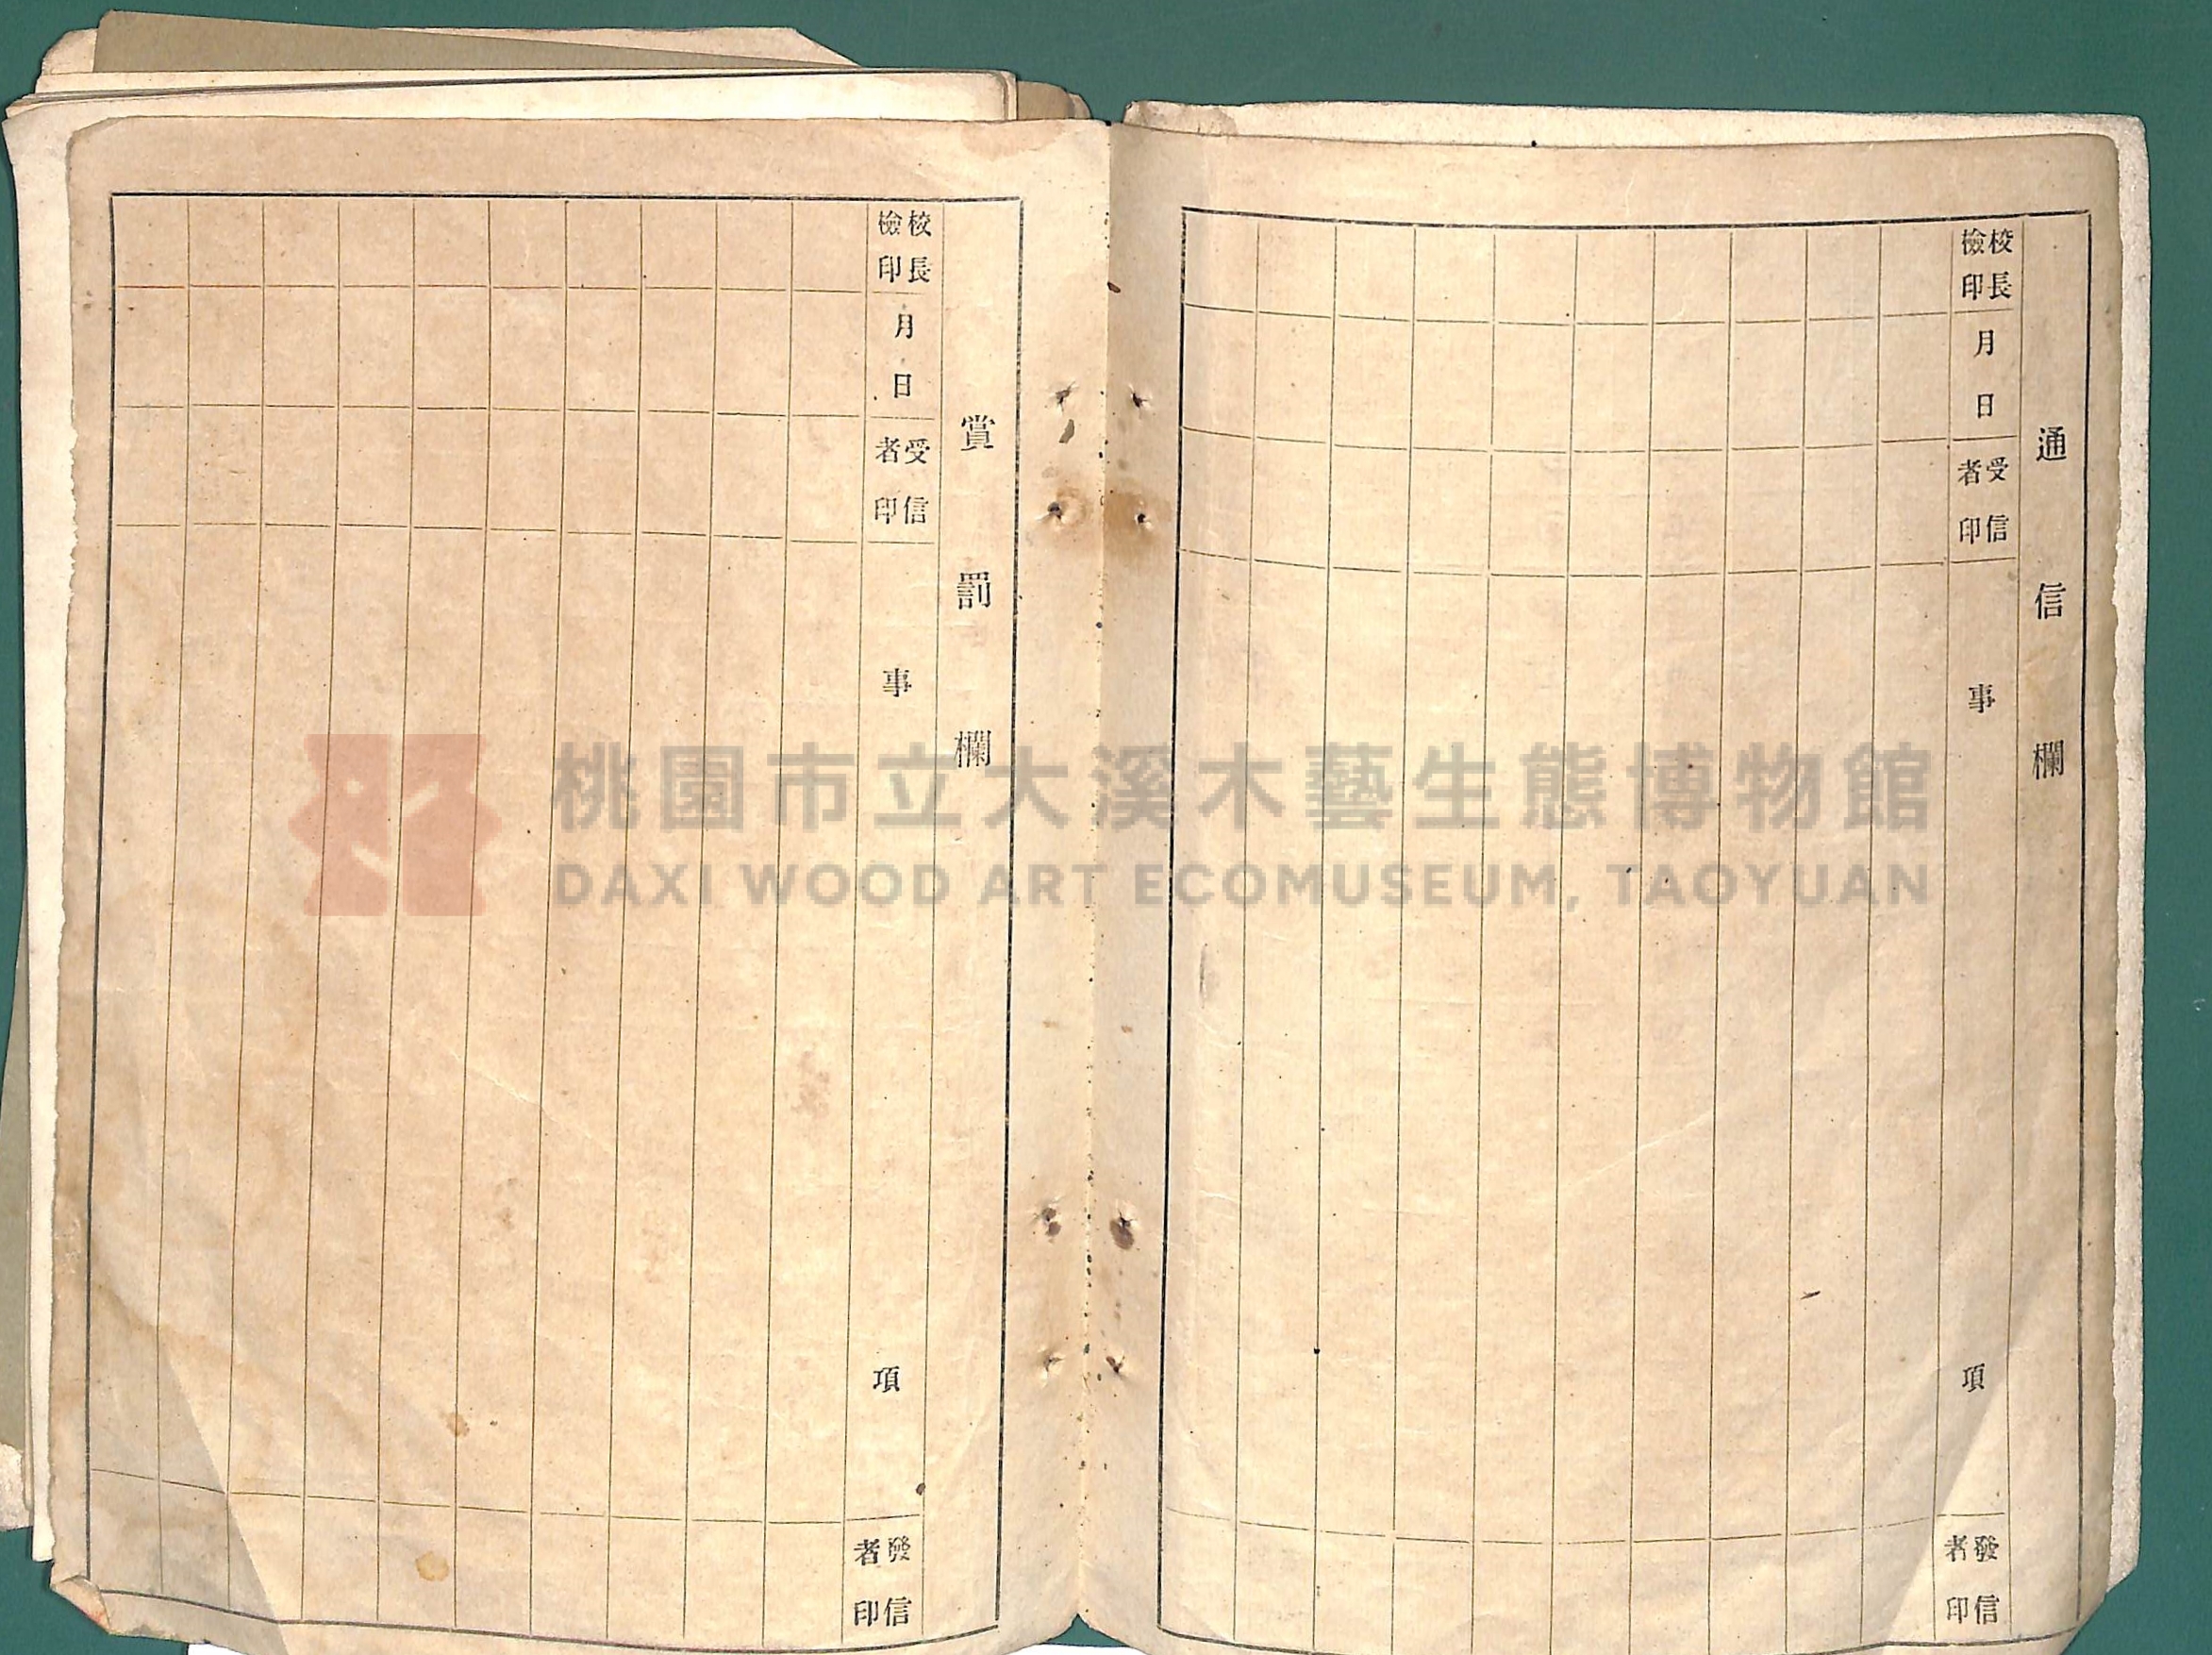 通信欄
校長檢印
月日
受信者印
事項
發信者印
賞罰欄
校長檢印
月日
受信者印
事項
發信者印
桃園市立大溪木藝生態博物館
DAXI WOOD ART ECOMUSEUM, TAOYUAN